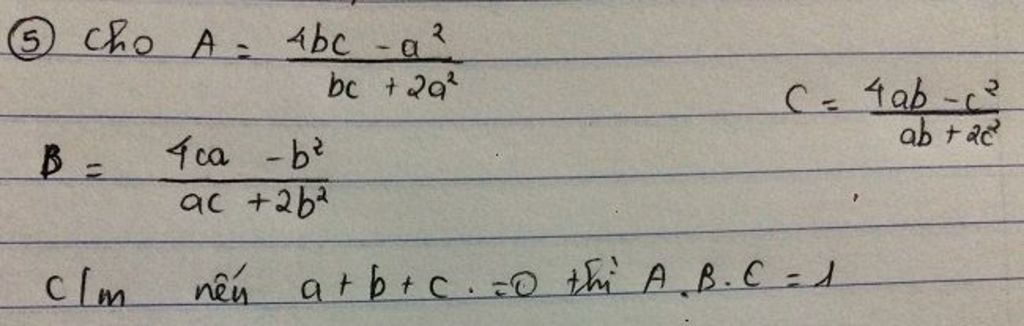 ⑤ Cho A = \frac{4bc - a^2}{bc + 2a^2}
C = \frac{4ab - c^2}{ab + 2c^2}
B = \frac{4ca - b^2}{ac + 2b^2}
C/m nếu a + b + c . = 0 thì A . B . C = 1